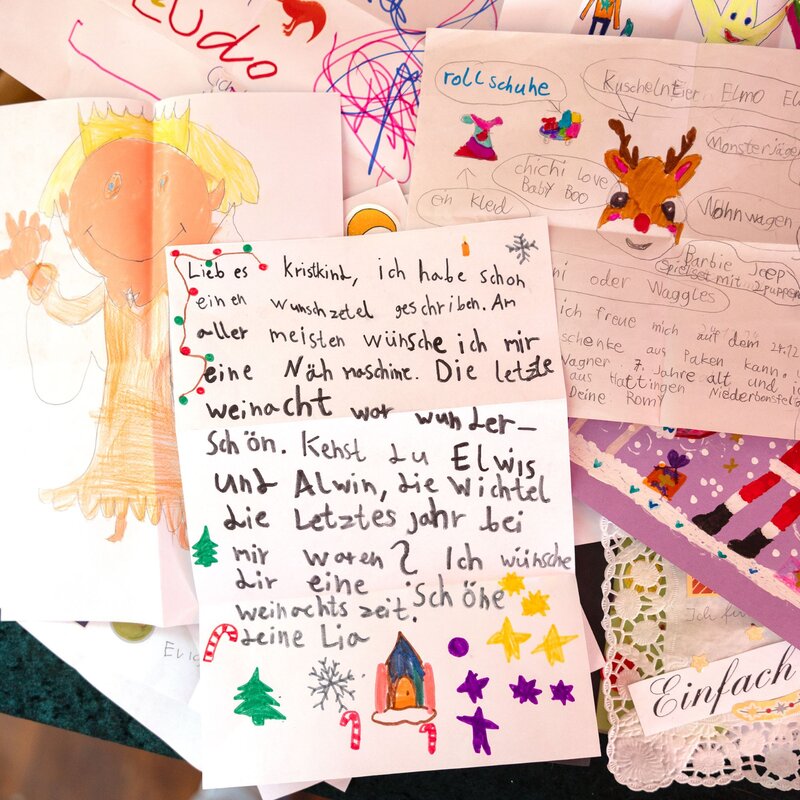 Ludo
rollschuhe
Kuscheltier ELMO
Monsterjäg
chichi Love
Baby Boo
ein Kleid
Wohnwagen
Barbie Jeep
Spielset mit 2 puppen
ni oder Waggles
ich freue mich auf dem 24.12
schenke aus Paken kann.
Wagner 7 Jahre alt und
aus Hattingen Niederbonsfeld
Deine Romy
Lieb es Kristkint, ich habe schon
einen wunschzetel geschriben. Am
aller meisten wünsche ich mir
eine Näh maschine. Die letzte
weinacht war wunder-
Schön. Kenst du Elwis
und Alwin, die Wichtel
die Letztes jahr bei
mir waren? Ich wünsche
dir eine Schöne
weihnachts zeit.
deine Lia
Einfach